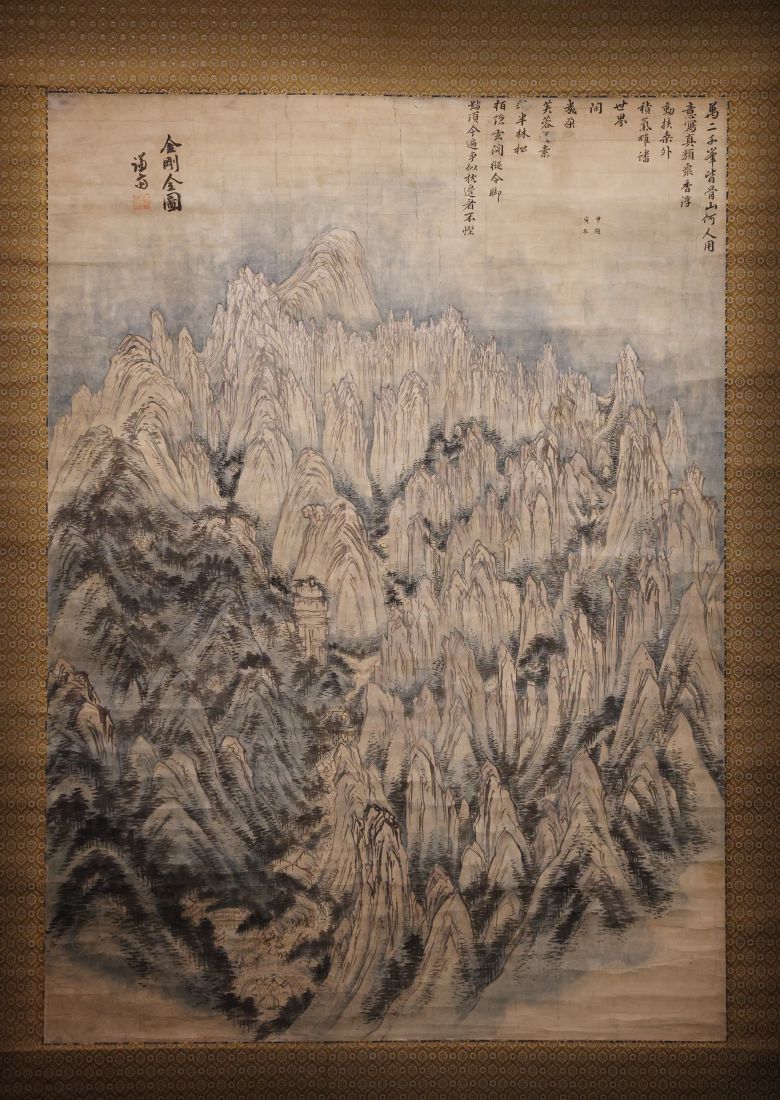 萬二千峯皆骨山何人用
意寫真顔衆香浮
動扶桒外
積氣雄蟠
世界
間
甲寅冬題
幾朶
芙蓉素
半林松
栢隱玄關縱令脚
踏須今遍爭似枕邊看不慳
金剛全圖
謙齋